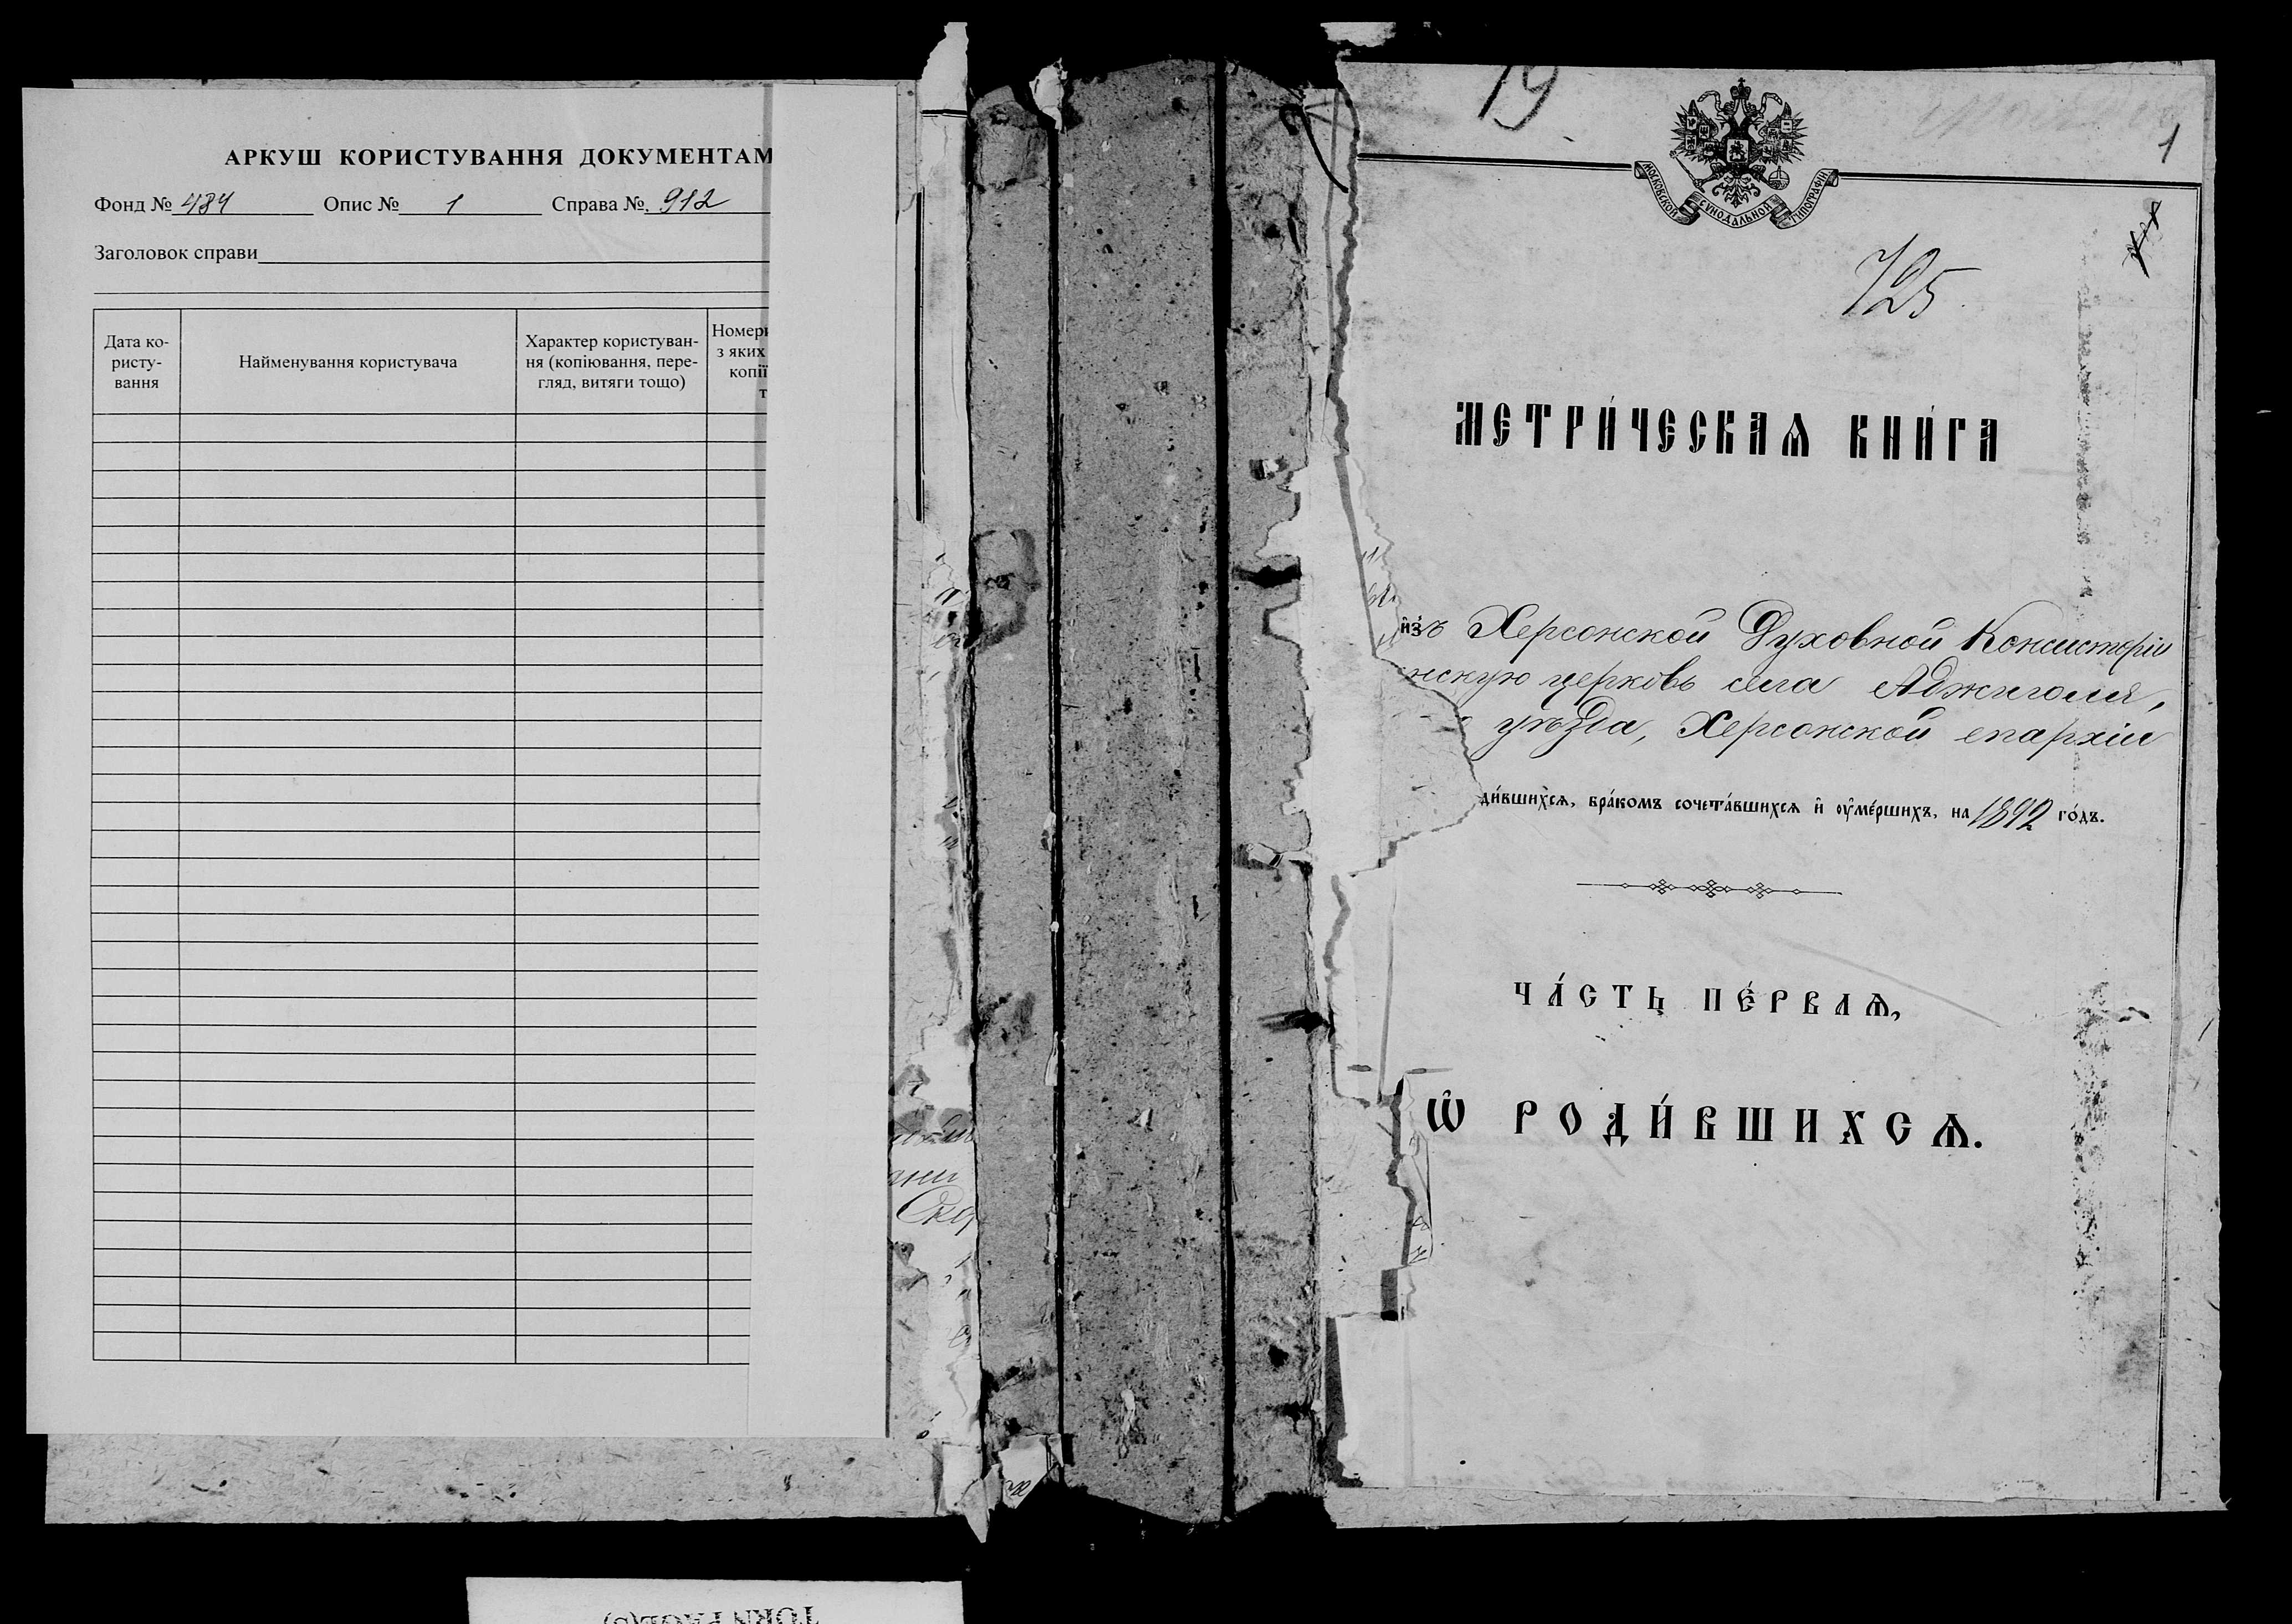 АРКУШ КОРИСТУВАННЯ ДОКУМЕНТАМ
Фонд № 484 Опис № 1 Справа №. 912
Заголовок справи
Дата ко-
ристу-
вання
Найменування користувача
Характер користуван-
ня (копіювання, пере-
гляд, витяги тощо)
Номери
з яких
копії
т
19
1
МОСКОВСКОЙ СѴНОДАЛЬНОЙ ТИПОГРАФІИ
725
МЕТРИ́ЧЕСКАѦ КНИ́ГА
и҆зъ Херсонской Духовной Консисторіи
нскую церковь села Аджиголя,
уѣзда, Херсонской епархіи
ди́вшихсѧ, бра́комъ сочета́вшихсѧ и҆ ᲂу҆ме́ршихъ, на 1892 го́дъ.
ЧА́СТЬ ПЕ́РВАѦ,
Ѡ҆ РОДИ́ВШИХСѦ.
TORN PAGE(S)